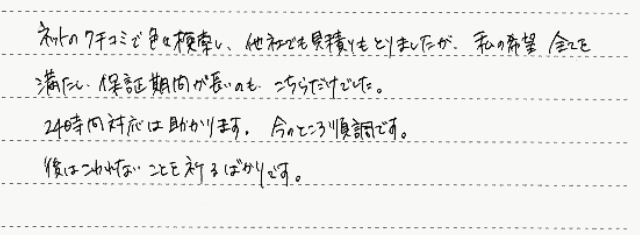 ネットの口コミで色々検索し、他社でも見積りもとりましたが、私の希望 全てを
満たし、保証期間が長いのも、こちらだけでした。
24時間対応は助かります。今のところ順調です。
後はこわれないことを祈るばかりです。